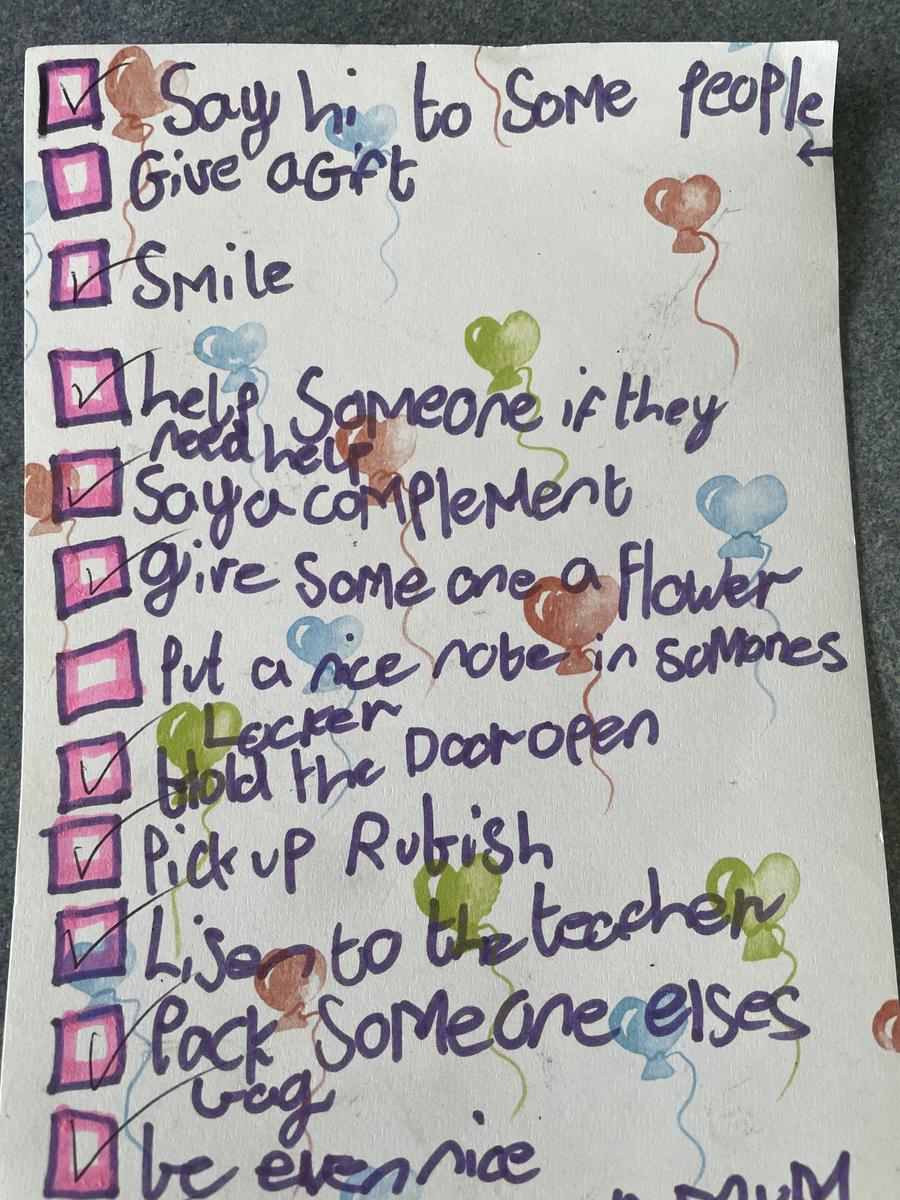 Say hi to Some People
←
Give a Gift
Smile
help Someone if they
need help
Say a complement
give Some one a flower
Put a nice note in somones
Locker
Hold the Door open
Pick up Rubish
Lisen to the teacher
Pack Someone elses
bag
be even nice
MUM